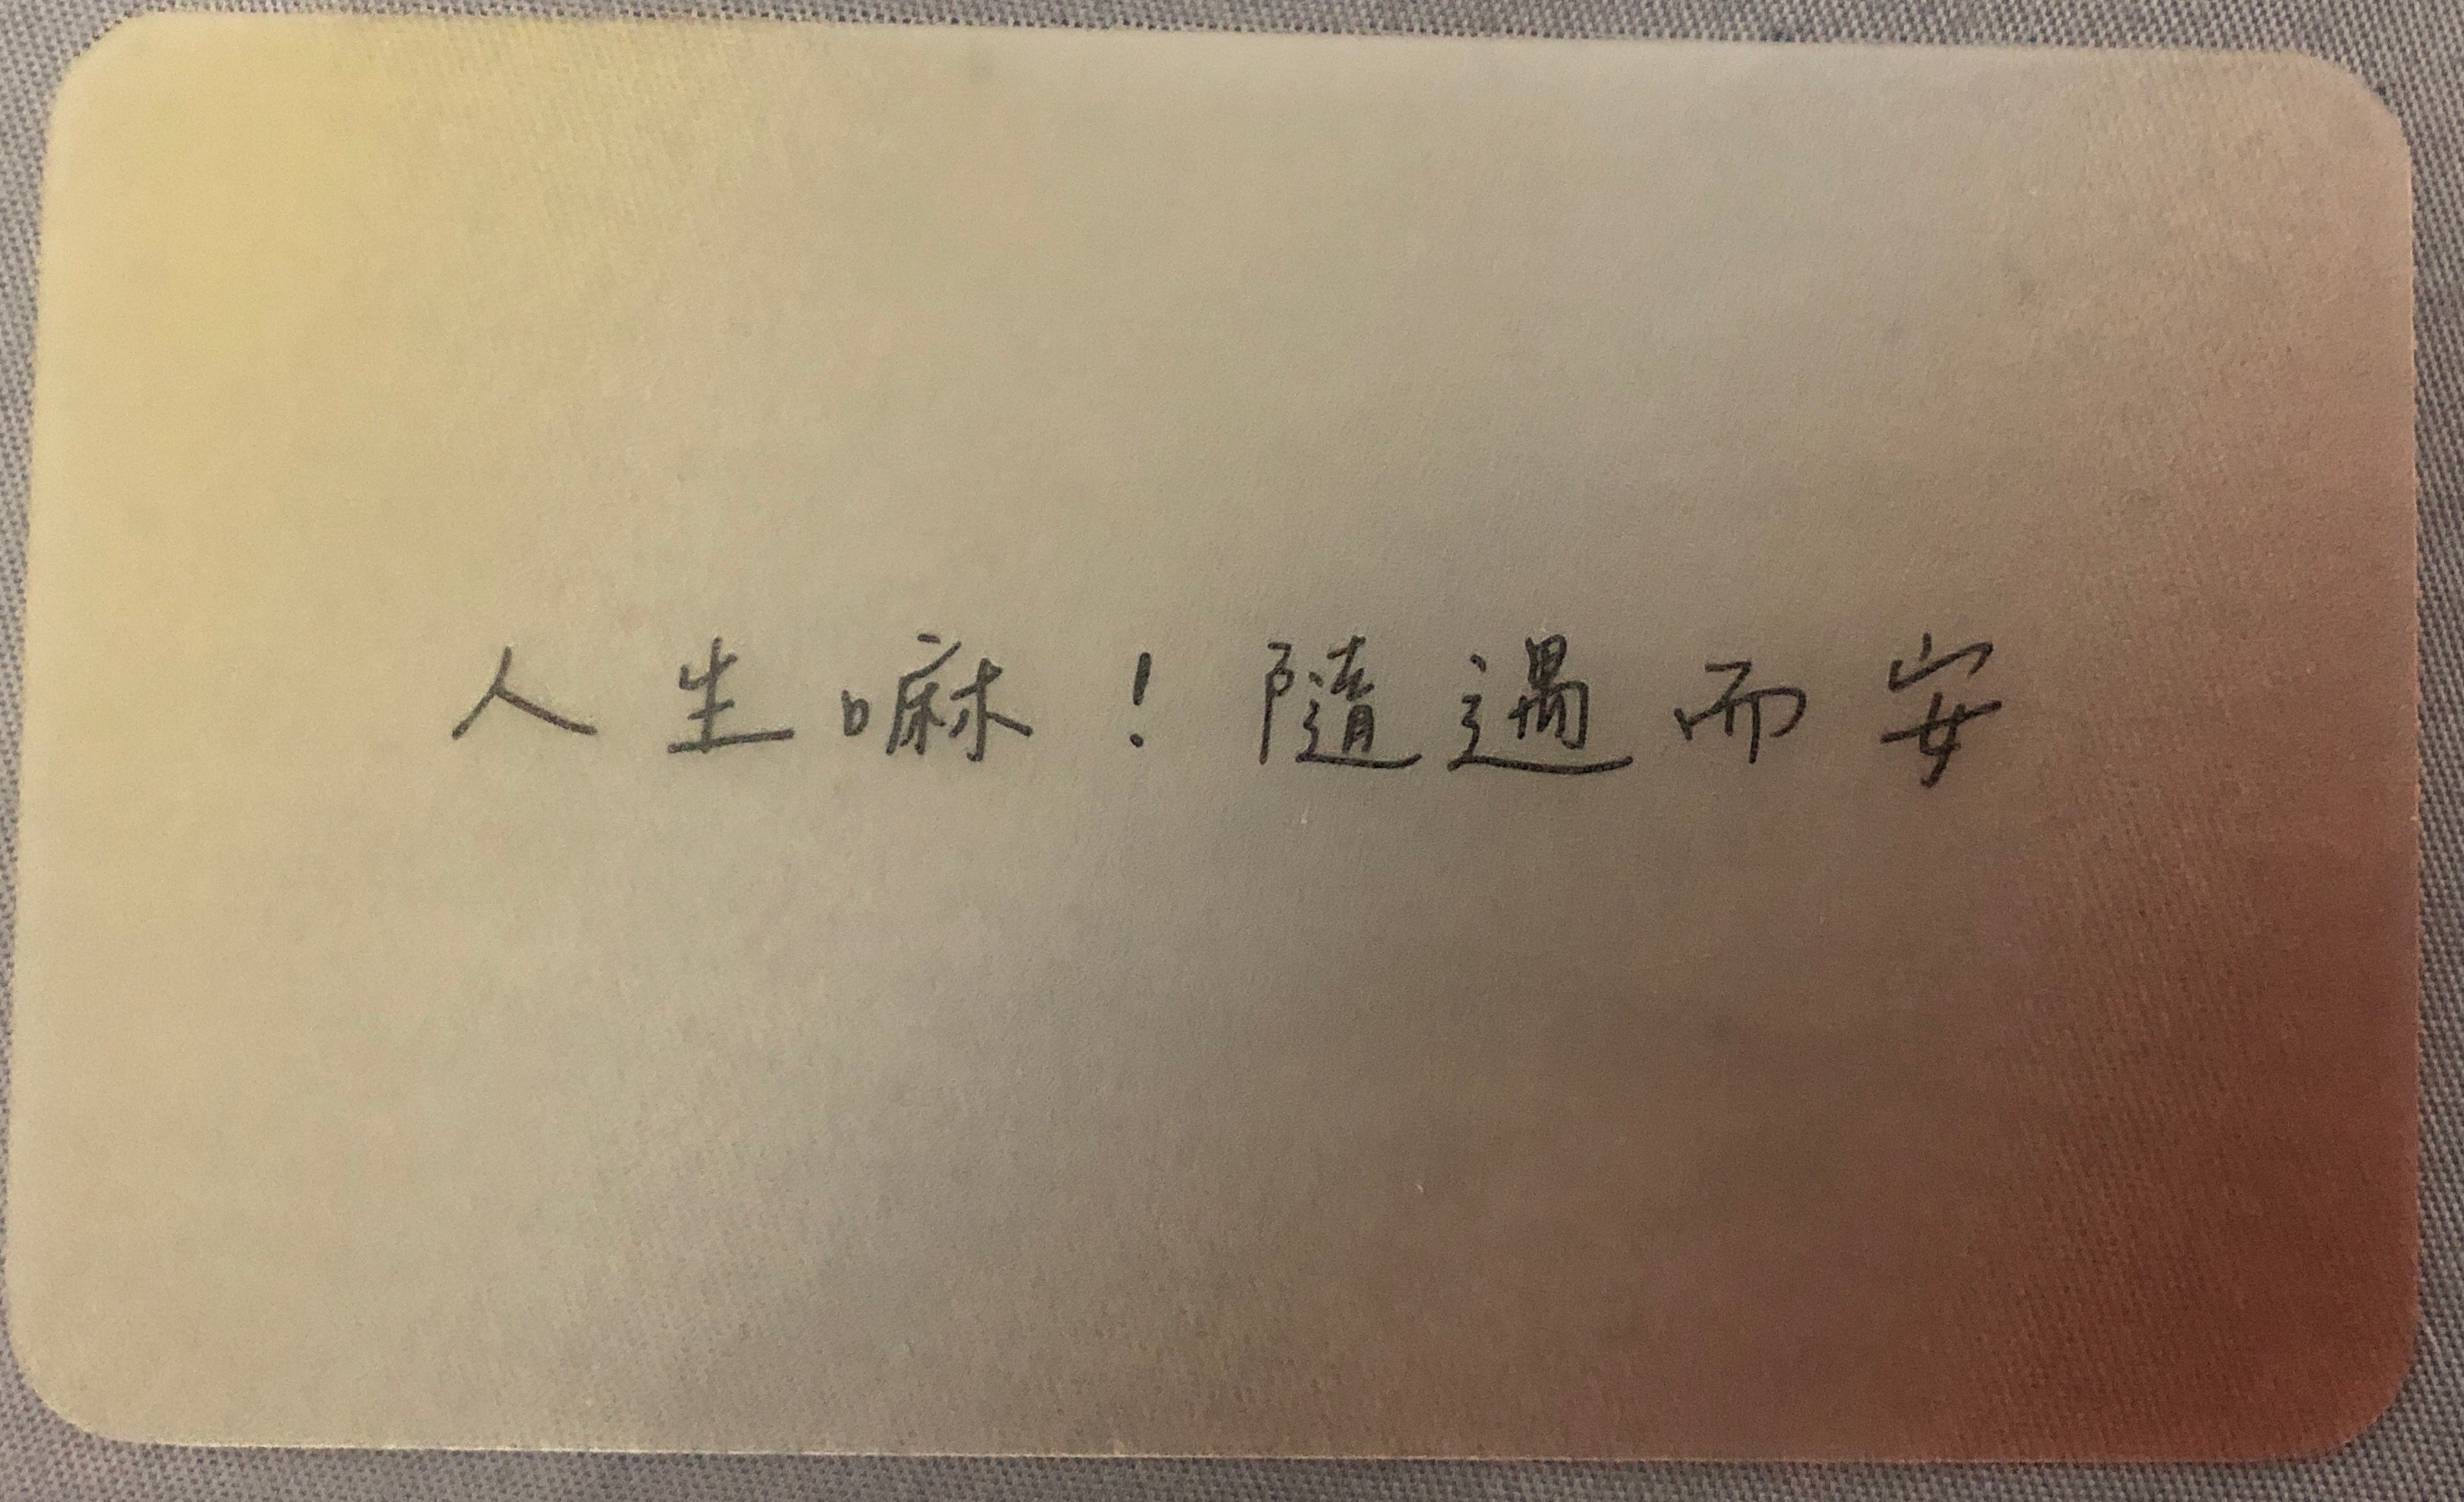 人生嘛！隨遇而安